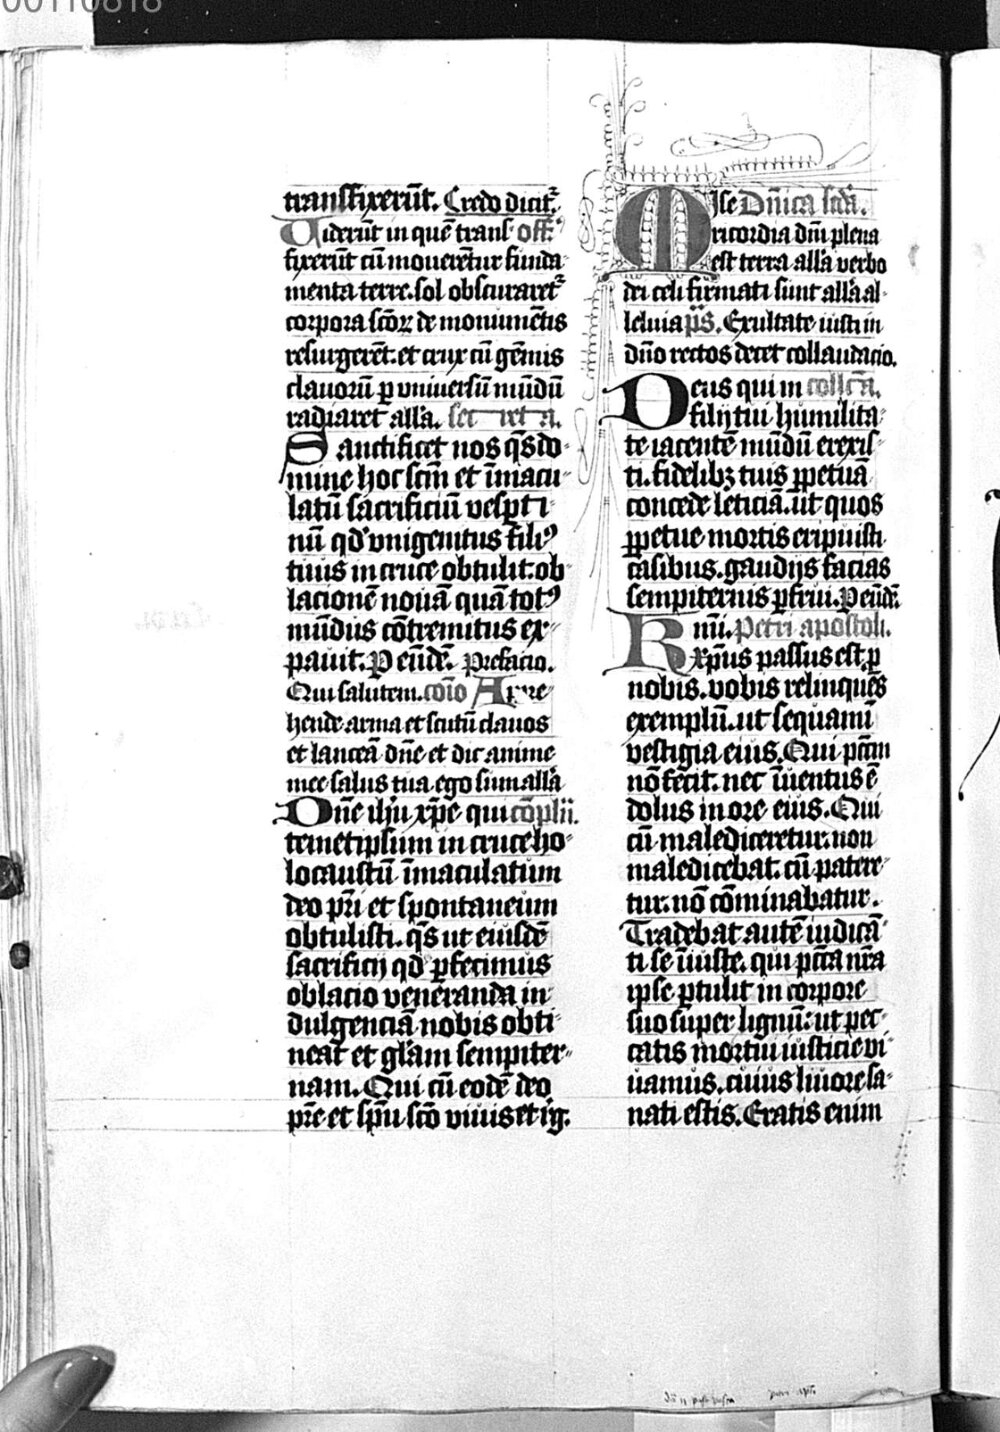 00110818
transfixerūt. Credo dicit᷑.
Uiderūt in quē trans- off᷑.
fixerūt cū mouerētur funda-
menta terre. sol obscuraret᷑
corpora scōꝝ de monumētis
resurgerēt. et crux cū gēmis
clauorū ꝑ vniuersū mūdū
radiaret all̄a. secreta.
Sanctificet nos q̄s do-
mine hoc scm̄ et īmacu-
latū sacrificiū vesꝑti-
nū qd̕ vnigenitus filiꝰ
tuus in cruce obtulit. ob-
lacionē nouā quā totꝰ
mūdus cōtremitus ex-
pauit. P eūdē. Prefacio.
Qui salutem. cōio Appre-
hende arma et scutū clauos
et lanceā dn̄e et dic anime
mee salus tua ego sum all̄a
Dn̄e ihū xp̄e qui cōplīi.
temetipsum in cruce ho-
locaustū īmaculatum
deo pr̄i et spontaneum
obtulisti. q̄s ut eiusdē
sacrificij qd̕ ꝑfecimus
oblacio veneranda in-
dulgenciā nobis obti-
neat et gl̄am sempiter-
nam. Qui cū eodē deo
pr̄e et sp̄u sc̄o viuis et rḡ.
Mise Dn̄ica sc̄da.
ricordia dn̄i plena
est terra all̄a verbo
dei celi firmati sunt all̄a al-
leluia p̄s. Exultate iusti in
dn̄o rectos decet collaudacio.
Deus qui in collc̄a.
filij tui humilita-
te iacentē mūdū erexis-
ti. fidelibꝫ tuis ꝑpetuā
concede leticiā. ut quos
ꝑpetue mortis eripuisti
casibus. gaudijs facias
sempiternis ꝑfrui. P eūdē.
Kmi. Petri apostoli.
xp̄us passus est. ꝑ
nobis. vobis relinquēs
exemplū. ut sequami
vestigia eius. Qui pc̄cm
nō fecit. nec īuentus ē
dolus in ore eius. Qui
cū malediceretur. non
maledicebat. cū patere-
tur. nō cōminabatur.
Tradebat autē iudicā-
ti se īiuste. qui pc̄cā nr̄a
ipse ꝑtulit in corpore
suo super lignū. ut pec-
catis mortui iusticie vi-
uamus. cuius liuore sa-
nati estis. Eratis enim